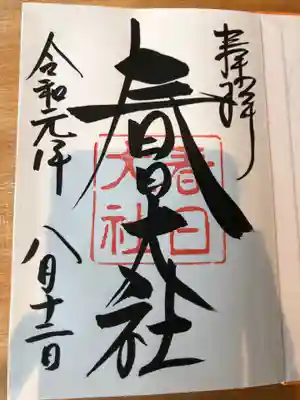 奉拝
春日大社
春日
大社
令和元年 八月十二日